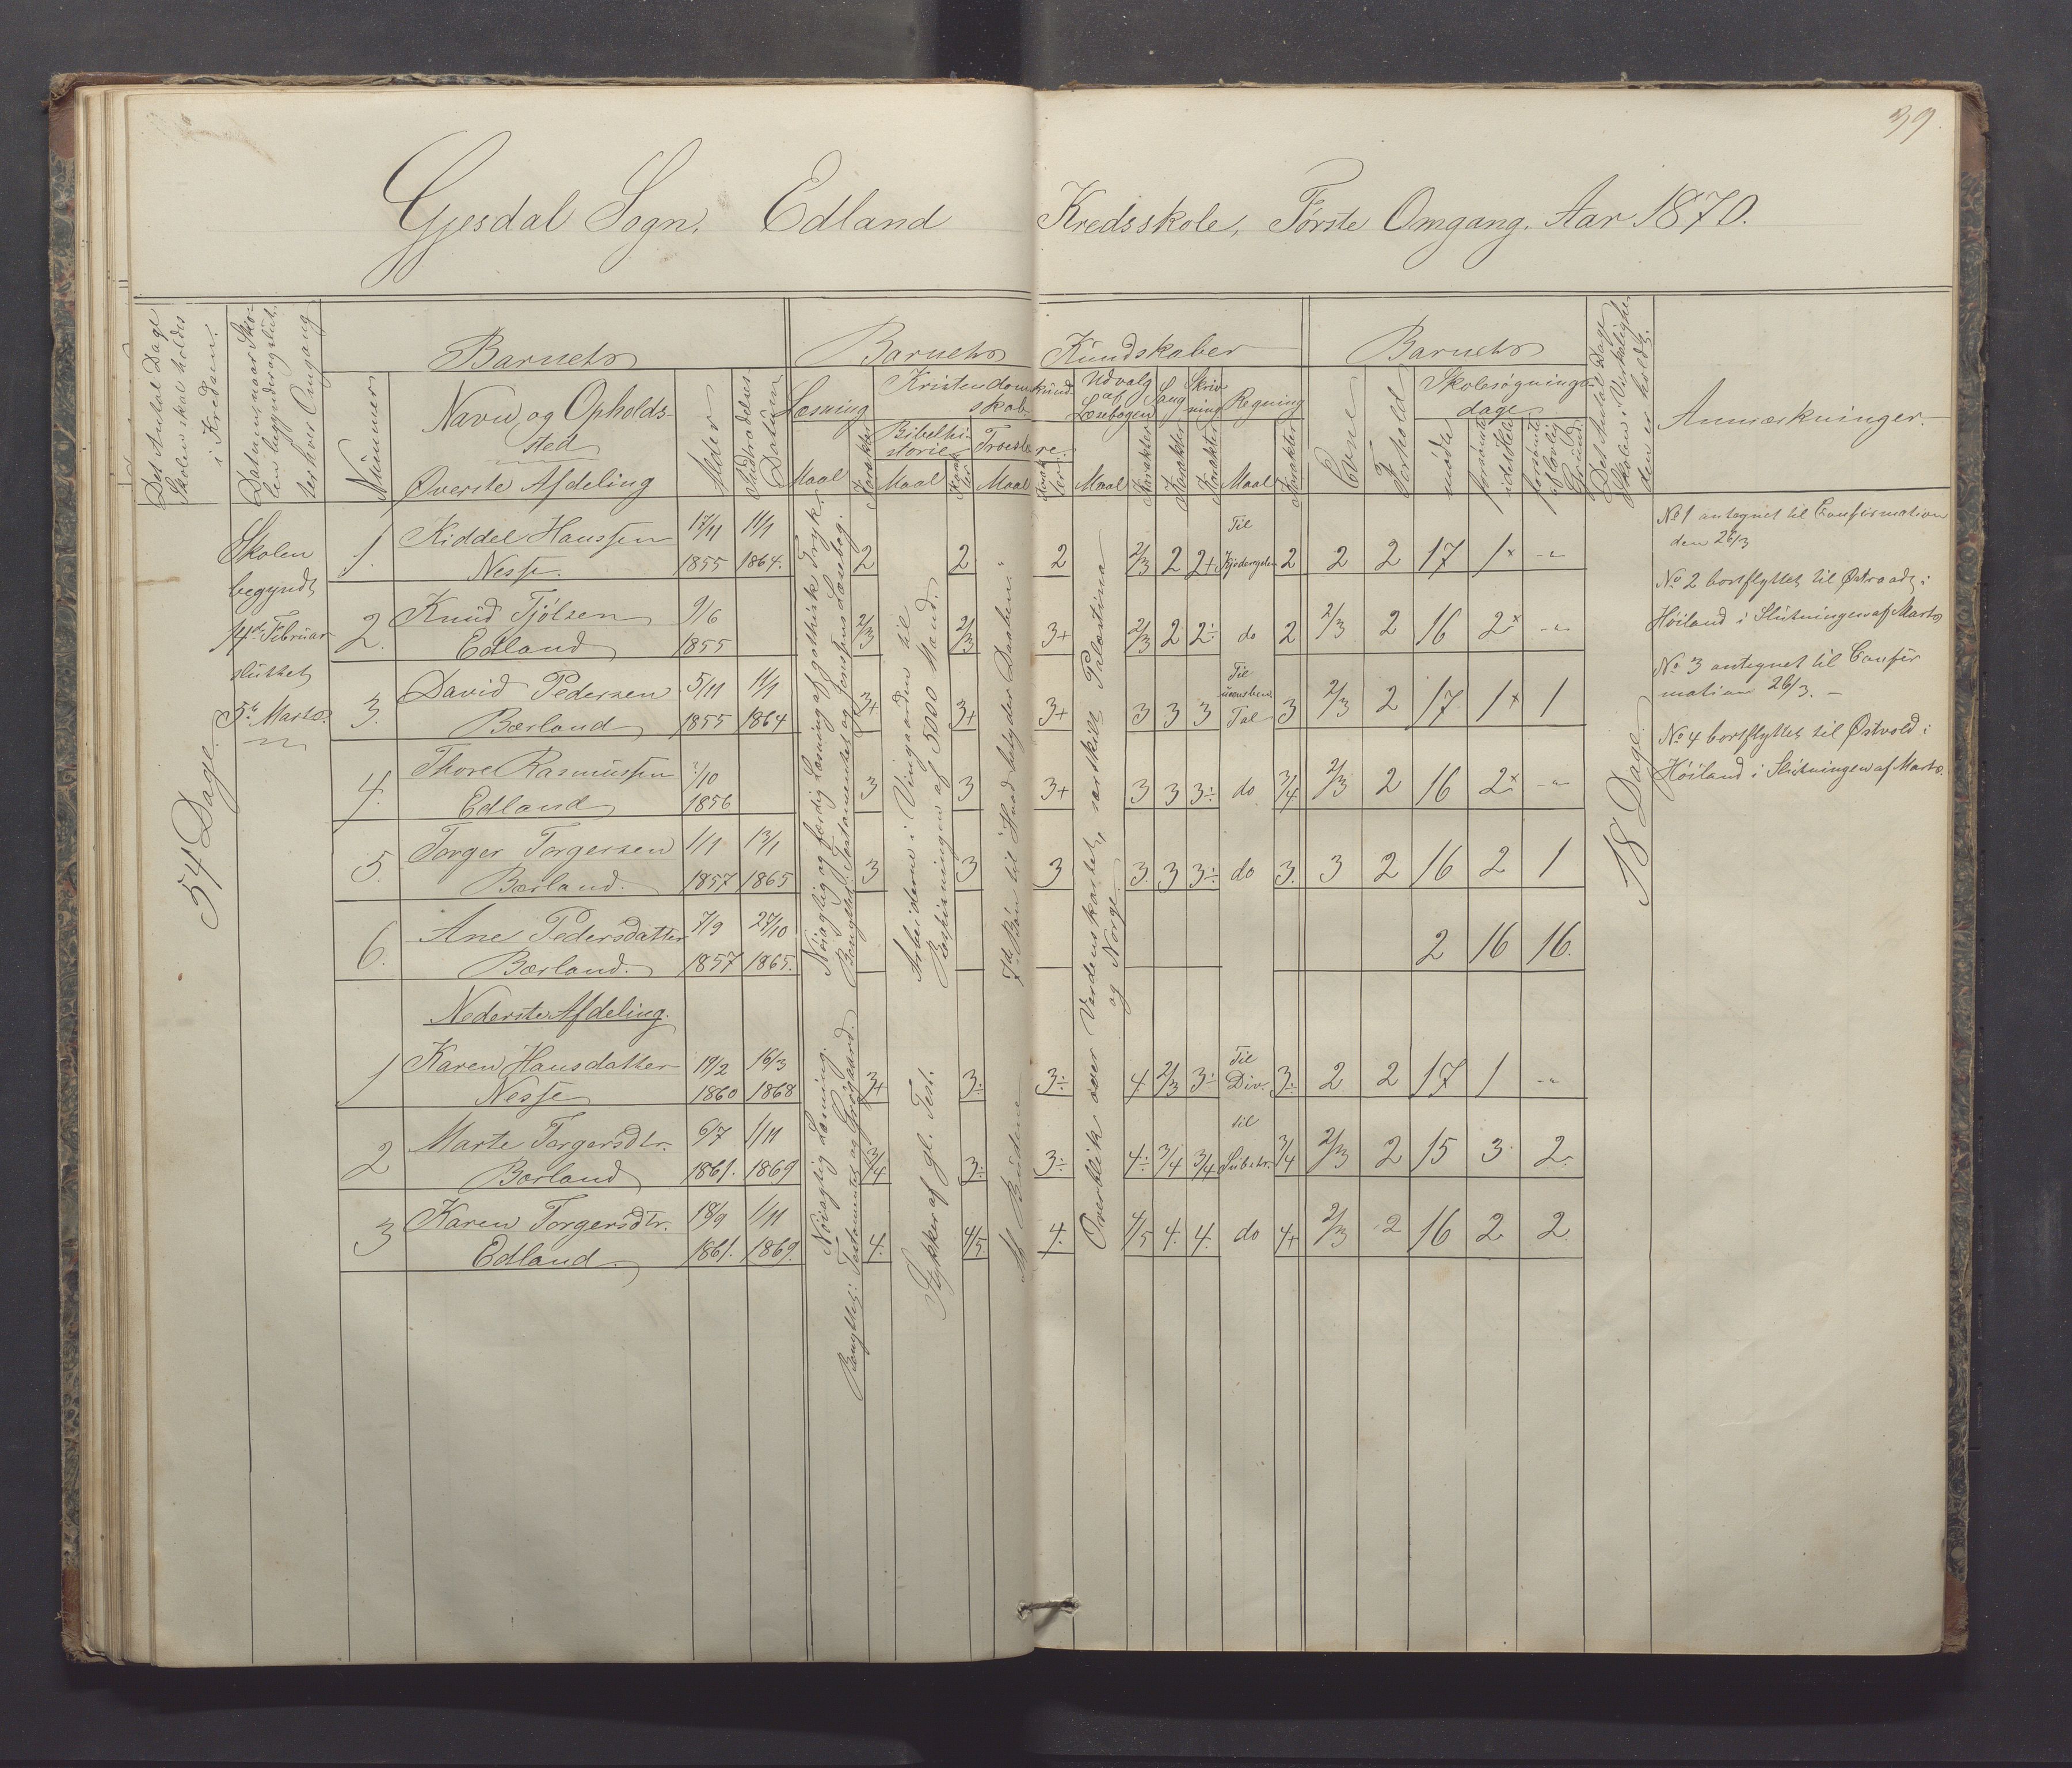 39.
Gjesdal Sogn. Edland Kredsskole, Første Omgang. Aar 1870.
Det Antal Dage Skolen skal holdes i Kredsen.
Datum, naar Skolen begynder og slutter hver Omgang
Barnets
Nummer
Navn og Opholdssted
Øverste Afdeling
Alder
Indtrædelses Datum
Barnets Kundskaber
Læsning
Maal
Karakter
Kristendomskundskab.
Bibelhistorie
Maal
Karakter
Troeslære.
Maal
Karakter
Udvalg af Læsebogen
Maal
Karakter
Sang
Karakter
Skrivning
Karakter
Regning
Maal
Karakter
Barnets
Evne
Forhold
Skolesøgningsdage
mødt
forsømt i det Hele
forsømt af lovlig Grund.
Det Antal Dage Skolen i Virkeligheden er holdt.
Anmærkninger.
54 Dage.
Skolen
begyndt
14de Februar
sluttet
5te Marts.
1. Kiddel Hanssen 17/11 11/1 2 2 2 2/3 2 2+ Til 2 2 2 17 1x -"-
Nesse. 1855 1864.
2. Knud Tjølsen 9/6 2/3 2/3 3+ 2/3 2 2÷ do 2 2/3 2 16 2x -"-
Edland 1855
3. David Pedersen 5/11 11/1 3+ 3+ 3+ 3 3 3 Til Tal 3 2/3 2 17 1x 1
Bærland 1855 1864
4. Thore Rasmussen /10 3 3 3+ 3 3 3÷ do 3/4 2/3 2 16 2x -"-
Edland 1856
5. Torger Torgersen 1/1 13/1 3 3 3 3. 3 3÷ do 3. 3 2 16 2 1
Bærland. 1857 1865
6. Ane Pedersdatter 7/9 27/10 2 16 16.
Bærland. 1857 1865.
Nederste Afdeling.
1 Karen Hansdatter 19/2 16/3 3+ 3÷ 3÷ 4. 2/3 3÷ Til Div. 3÷ 2 2 17 1 -"-
Nesse 1860 1868
2 Marte Torgersdtr. 6/7 1/11 3/4 3÷ 3÷ 4÷ 3/4 3/4 til Subtr. 3/4 2/3 2 15 3 2
Bærland 1861. 1869
3 Karen Torgersdtr. 18/9 1/11 4. 4/5 4. 4/5 4. 4. do 4+ 2/3 2 16 2 2
Edland. 1861. 1869.
Nøiagtig og færdig Læsning af gothisk Tryk.
Benyttet: Testamentet og Jensens Læsebog.
Arbeiderne i Vingaarden til
Bespisningen af 5000 Mand.
7de Bøn til "Hvad betyder Daaben"
Overblik over Verdenskortet, særskilt Palæstina
og Norge.
Nøiagtig Læsning.
Benyttet: Testamentet og
Stykker af gl. Test.
Budene
18 Dage.
No 1 antegnet til Confirmation
den 26/3
No 2 bortflyttet til Østraadt i
Høiland i Slutningen af Marts
No 3 antegnet til Confir
mation 26/3. –
No 4 bortflyttet til Østvold i
Høiland i Slutningen af Marts.